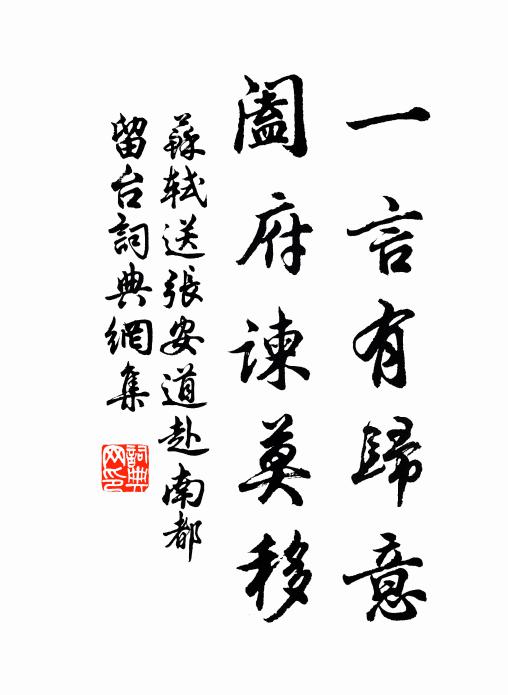 一言有歸意
闔府諫莫移
蘇軾送張安道赴南都
留台詞典網集
詞典
网印